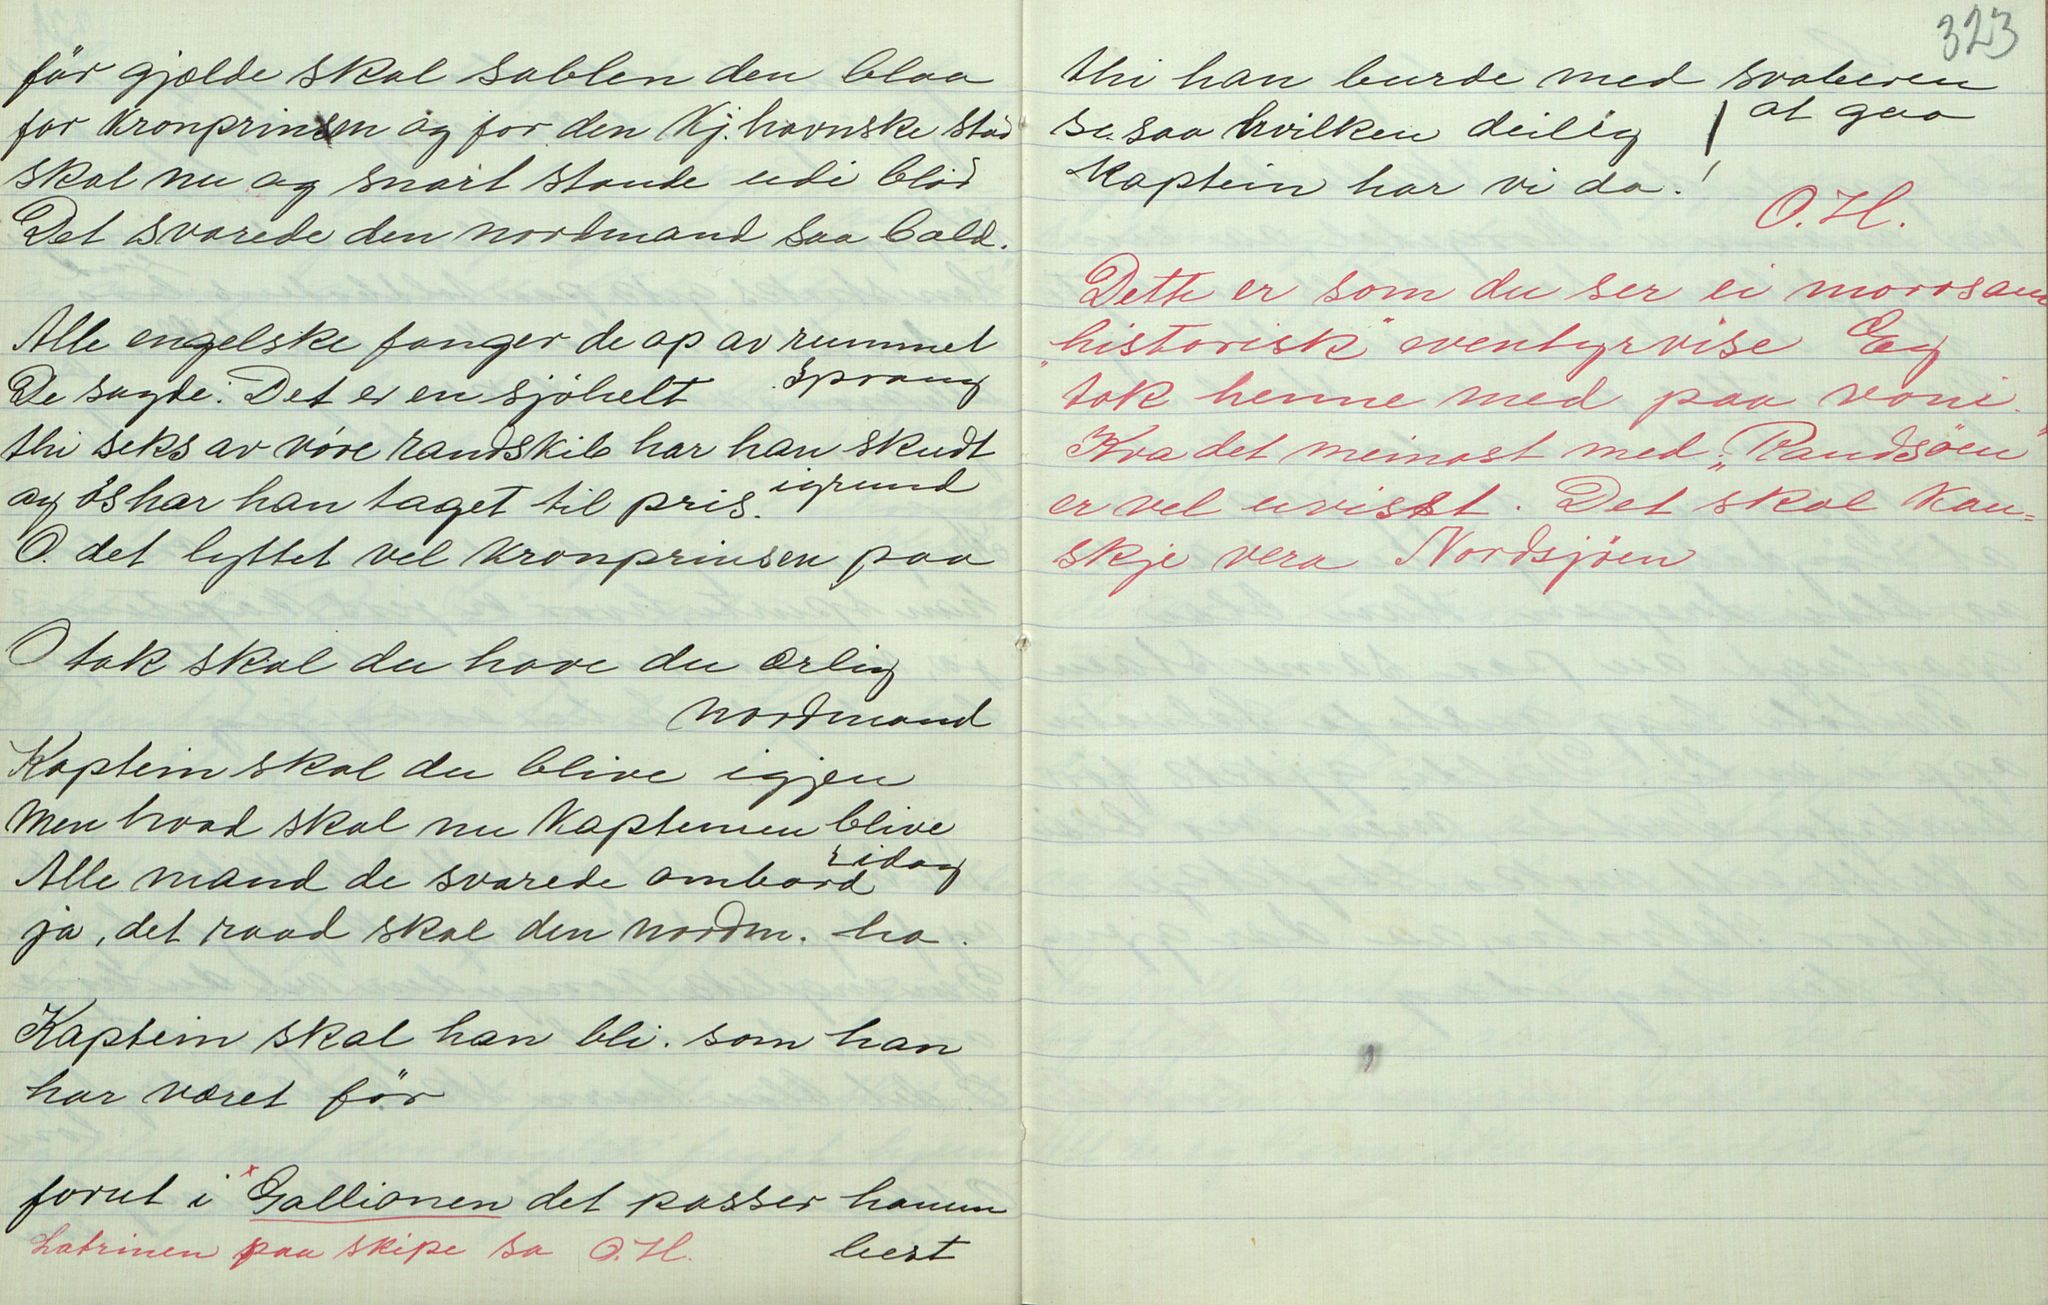 för gjælde skal sablen den blaa
for Kronprinsen og for den Kj.havnske stad
skal nu og snart stande udi blöd
Det svarede den nordmand saa bald.
Alle engelske fanger de op av rummet
sprang
De sagde: Det er en sjöhelt
thi seks av vóre randskib har han skudt
igrund
og ós har han taget til pris.
O. det lyttet vel Kronprinsen paa
O tak skal du have du ærlig
nordmand
Kaptein skal du blive igjen
Men hvad skal nu Kapteinen blive
idag
Alle mand de svarede ombord
ja, det raad skal den nordm. ha.
Kaptein skal han bli. som han
har været för
forut i x Gallionen det passer hanm
best
Latrinen paa skipe sa O.H.
323
thi han burde med svaberen
at gaa
se. saa hvilken deilig
Kaptein har vi da!
O.H.
Dette er som du ser ei morosam
"historisk" eventyrvise Eg
tok henne med paa vani.
Kva det meinast med "Randsöen"
er vel uvisst. Det skal kan=
skje vera Nordsjöen